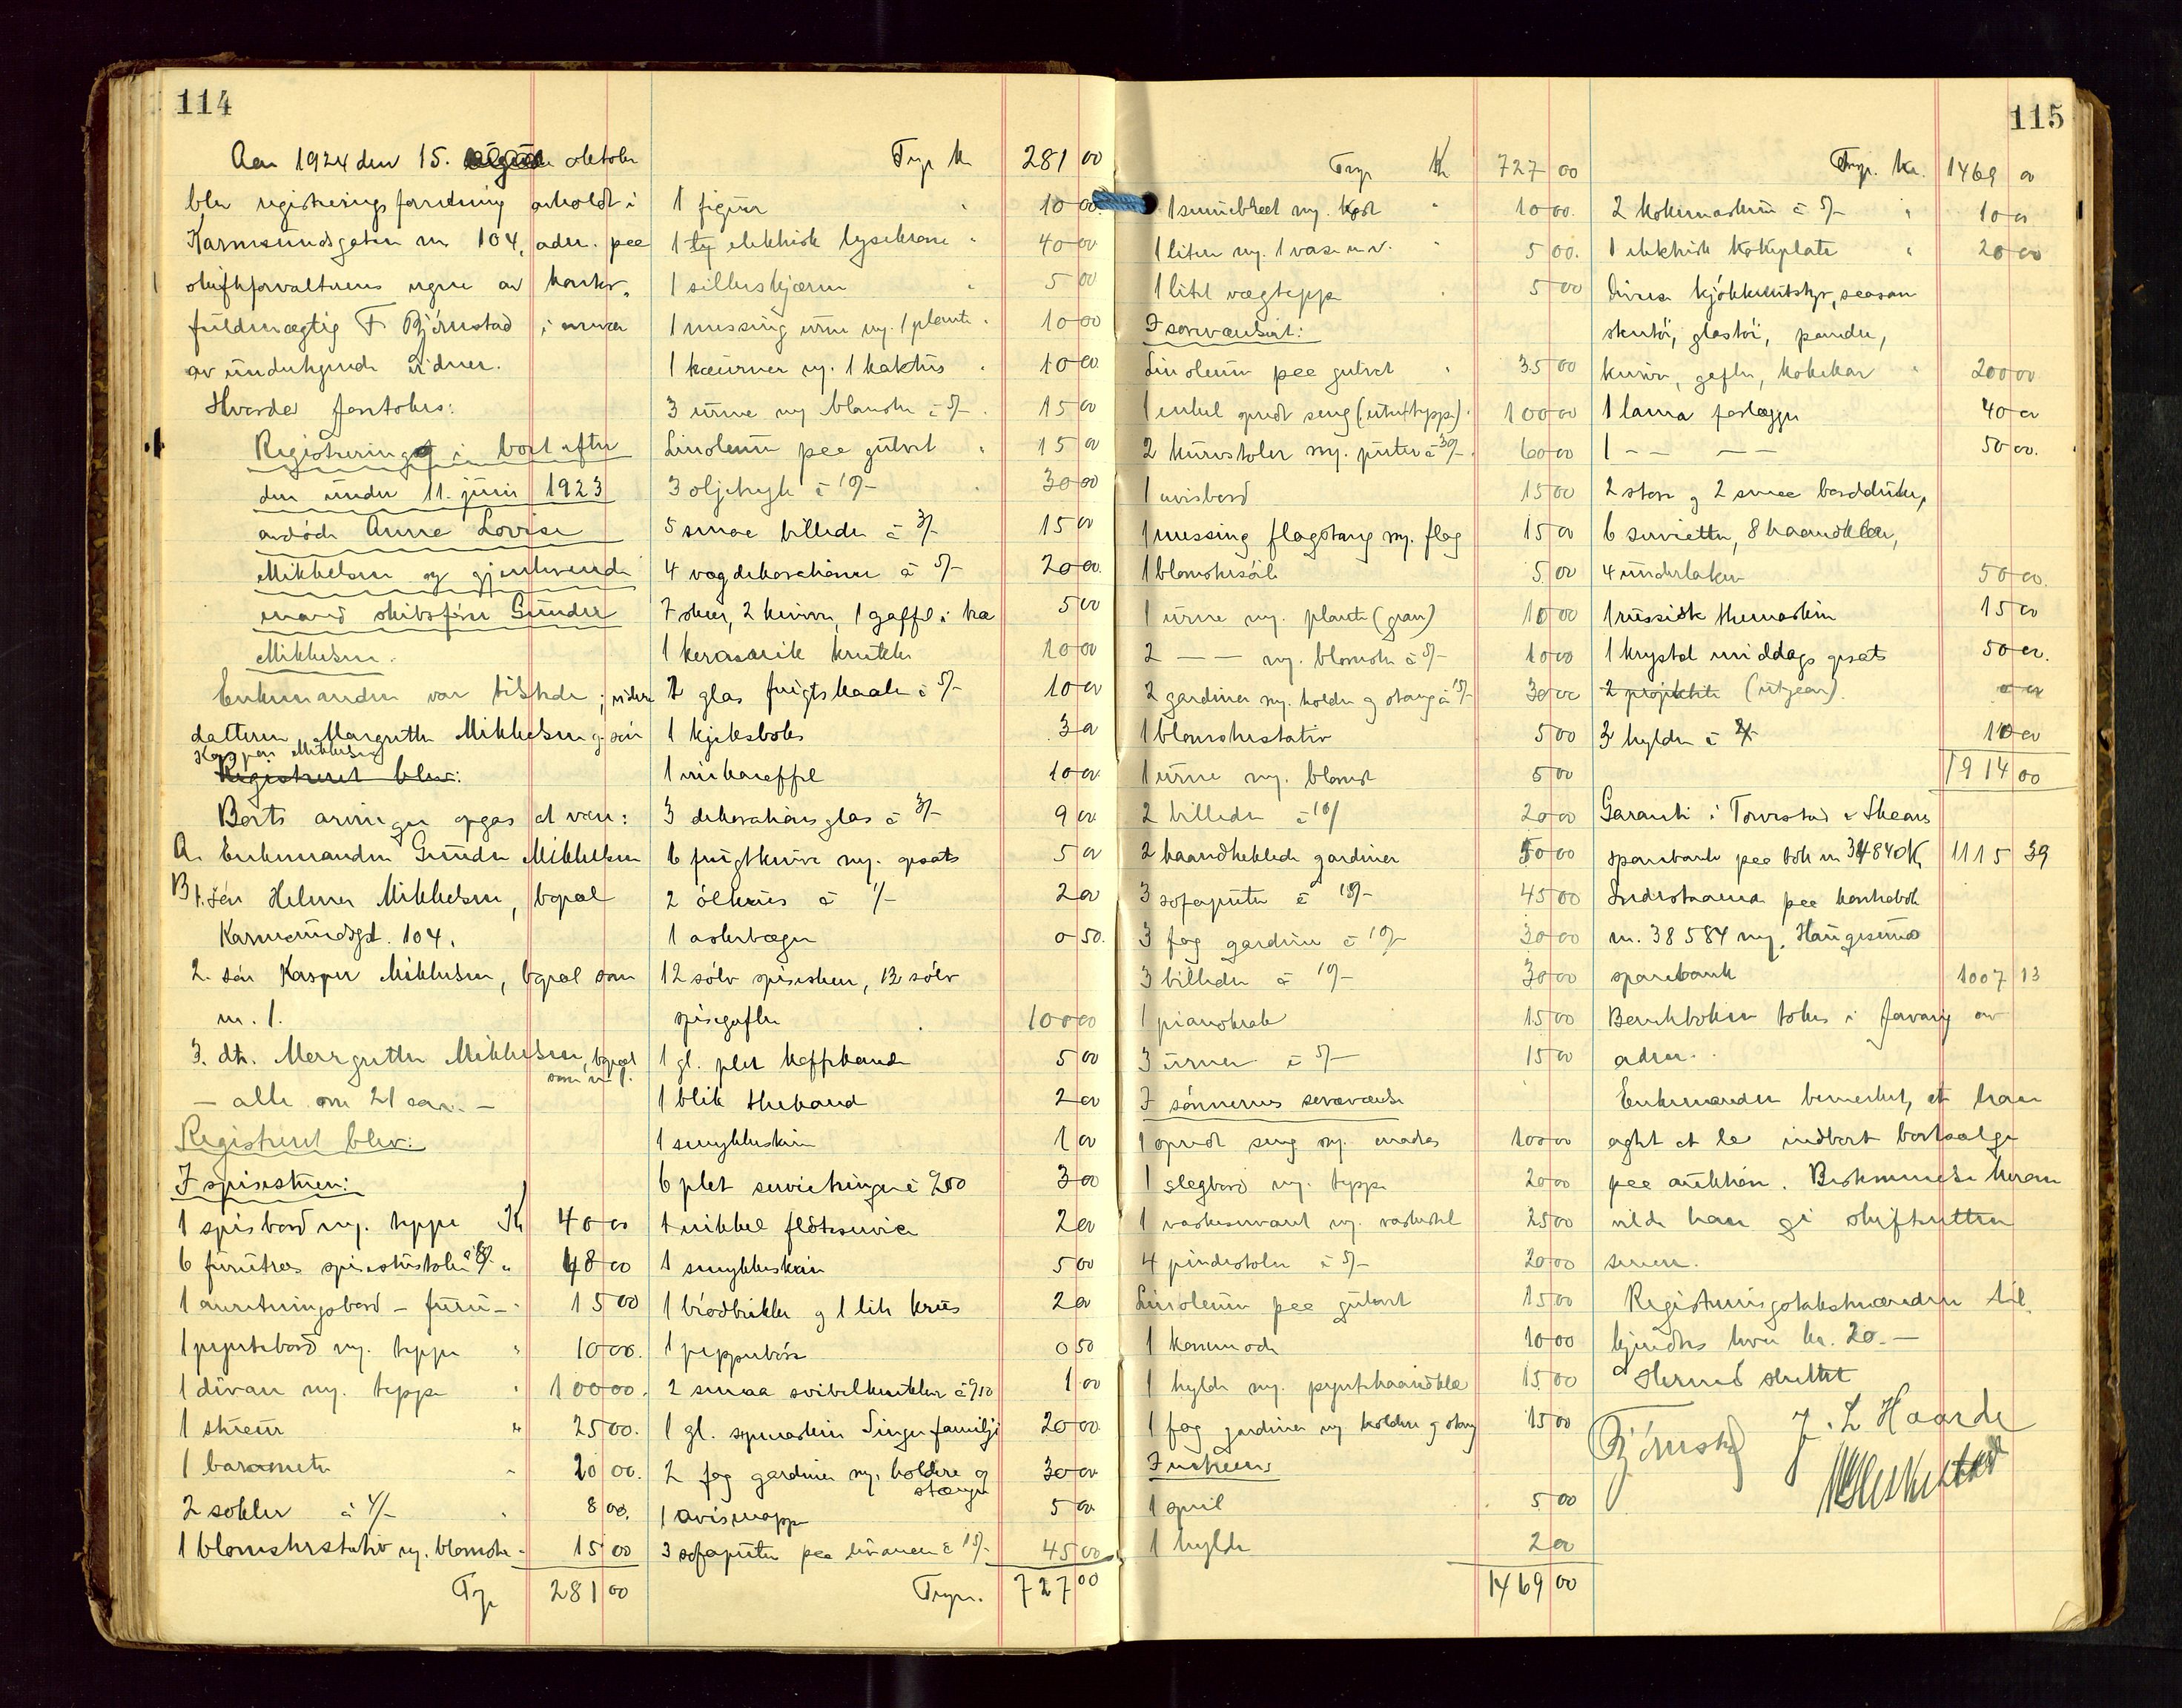 114
Aar 1924 den 15. oktober
blev registreringsforretning avholdt i
Karmsundsgaten nr 104, adm. paa
skifteforvalterens vegne av kontor-
fuldmægtig F. Bjørnstad i nærvær
av undertegnede vidner.
Hvorda foretokes:
Registrering i boet efter
den under 11. juni 1923
avdøde Anne Lovise
Mikkelsen og gjenlevende
mand skibsfører Gunder
Mikkelsen.
Enkemanden var tilstede; videre
datteren Margrethe Mikkelsen og søn
Kasper Mikkelsen
Registreret blev:
Boets arvinger opgas at være:
A. Enkemanden Gunder Mikkelsen
B 1. søn Helmer Mikkelsen, bopæl
Karmsundsgt. 104.
2. søn Kasper Mikkelsen, bopæl som
nr. 1.
3. dtr. Margrethe Mikkelsen, bopæl
som nr 1.
- alle over 21 aar. -
Registreret blev:
I spisestuen:
1 spisebord m. teppe Kr 40 00
6 furutræs spisestuestoler à 8/- " 48 00
1 anretningsbord - furu - " 15 00
1 pyntebord m. teppe " 10 00.
1 divan m. teppe " 100 00.
1 skrein " 25 00.
1 barometer " 20 00.
2 sokler à 4/- " 8 00.
1 blomsterstativ m. blomster " 15 00
Trp 281 00
Trp kr 281 00
1 figur " 10 00.
1 elektrisk lysekrone " 40 00
1 silkeskjærm " 5 00
1 messing urne m. 1 plante " 10 00
1 m. 1 kaktus " 10 00
3 urner m blomster à 5/- " 15 00
Linoleum paa gulvet " 15 00
3 oljetryk à 10/- " 30 00
5 smaa billeder à 3/- 15 00
4 vægdekorationer à 5/- 20 00.
7 skeer, 2 kniver, 1 gaffel i træ 5 00
1 keramik krukke 10 00
2 glas frugtskaale à 5/- 10 00
1 kjeksboks 3 00
1 vinkaraffel 10 00
3 dekorationsglas à 3/- 9 00
6 frugtknive m. gesats 5 00
2 ølkrus à 1/- 2 00
1 askebæger 0 50.
12 sølv spiseskeer, 12 sølv
spisegafler 100 00
1 gl. plet kaffekande 5 00
1 blik thekande 2 00
1 smykkeskrin 1 00
6 plet servietringer à 0.50 3 00
1 nikkel fløteservice 2 00
1 smykkeskrin 5 00
1 brødbrikke og 1 lite krus 2 00
1 pepperbøsse 0 50
2 smaa svibelkrukker à 0.50 1 00
1 gl. symaskin Singer familje 20 00
2 fag gardiner m. holdere og
stænger 30 00
1 avismappe 5 00
3 sofaputer paa divanen à 15/- 45 00
Trp. 727 00
115
Trp Kr 727 00
1 m. " 10 00.
1 liten m. 1 vase m v. " 5 00.
1 litet vægteppe " 5 00
I soveværelset:
Linoleum paa gulvet " 35 00
1 enkel opredt seng (uten teppe) " 100 00
2 kurvstoler m. puter à 30/- " 60 00
1 avisbord 15 00
1 messing flagstang m. flag 15 00
1 blomstersøile 5 00
1 urne m. plante (gran) 10 00
2 — — m. blomster à 5/- 10 00
2 gardiner m. holder og stang à 15/- 30 00
1 blomsterstativ 5 00
1 urne m. blomst 5 00
2 billeder à 10/ 20 00
2 haandheklede gardiner 50 00
3 sofaputer à 15/- 45 00
3 fag gardiner à 10/- 30 00
3 billeder à 10/- 30 00
1 pianokrak 15 00
3 urner à 5/- 15 00
I sønnernes soveværelse
1 opredt seng m. madras 100 00
1 slagbord m. teppe 20 00
1 vaskeservant m. vaskestel 25 00
4 pindestoler à 5/- 20 00
Linoleum paa gulvet 15 00
1 kommode 10 00
1 hylde m. pyntehaandklæ 15 00
1 fag gardiner m holdere og stang 15 00
1 speil 5 00
1 hylde 2 00
1469 00
Trp. kr. 1469 00
2 kokemaskiner à 5/- " 10 00
1 elektrisk kokeplate " 20 00
Diverse kjøkkenutstyr, saasom
stentøi, glastøi, pander,
kniver, gafler, kokekar " 200 00
1 lama forlægger 40 00
1 — — — — 50 00.
2 store og 2 smaa bordduker,
6 servietter, 8 haandklær,
4 underlaken 50 00.
1 russisk themaskin 15 00
1 krystal middags gesats 50 00.
2 projektiler (utgaar)
3 hylder à 10 00
1914 00
Garanti i Torvestad & Skaare
sparebank paa bok nr 34840 Kr 1115 39
Indestaaende paa kontrabok
nr. 38584 m. Haugesunds
sparebank 1007 13
Bankboken tokes i forvaring av
adm.
Enkemanden bemerket, at han
agtet at la indboet bortsælge
paa auktion. Bestemmelse herom
vilde han gi skifteretten
senere.
Registreringstakstmændene til-
kjendtes hver kr. 20.—
Hermed sluttet
Bjørnstad J. L Haarde